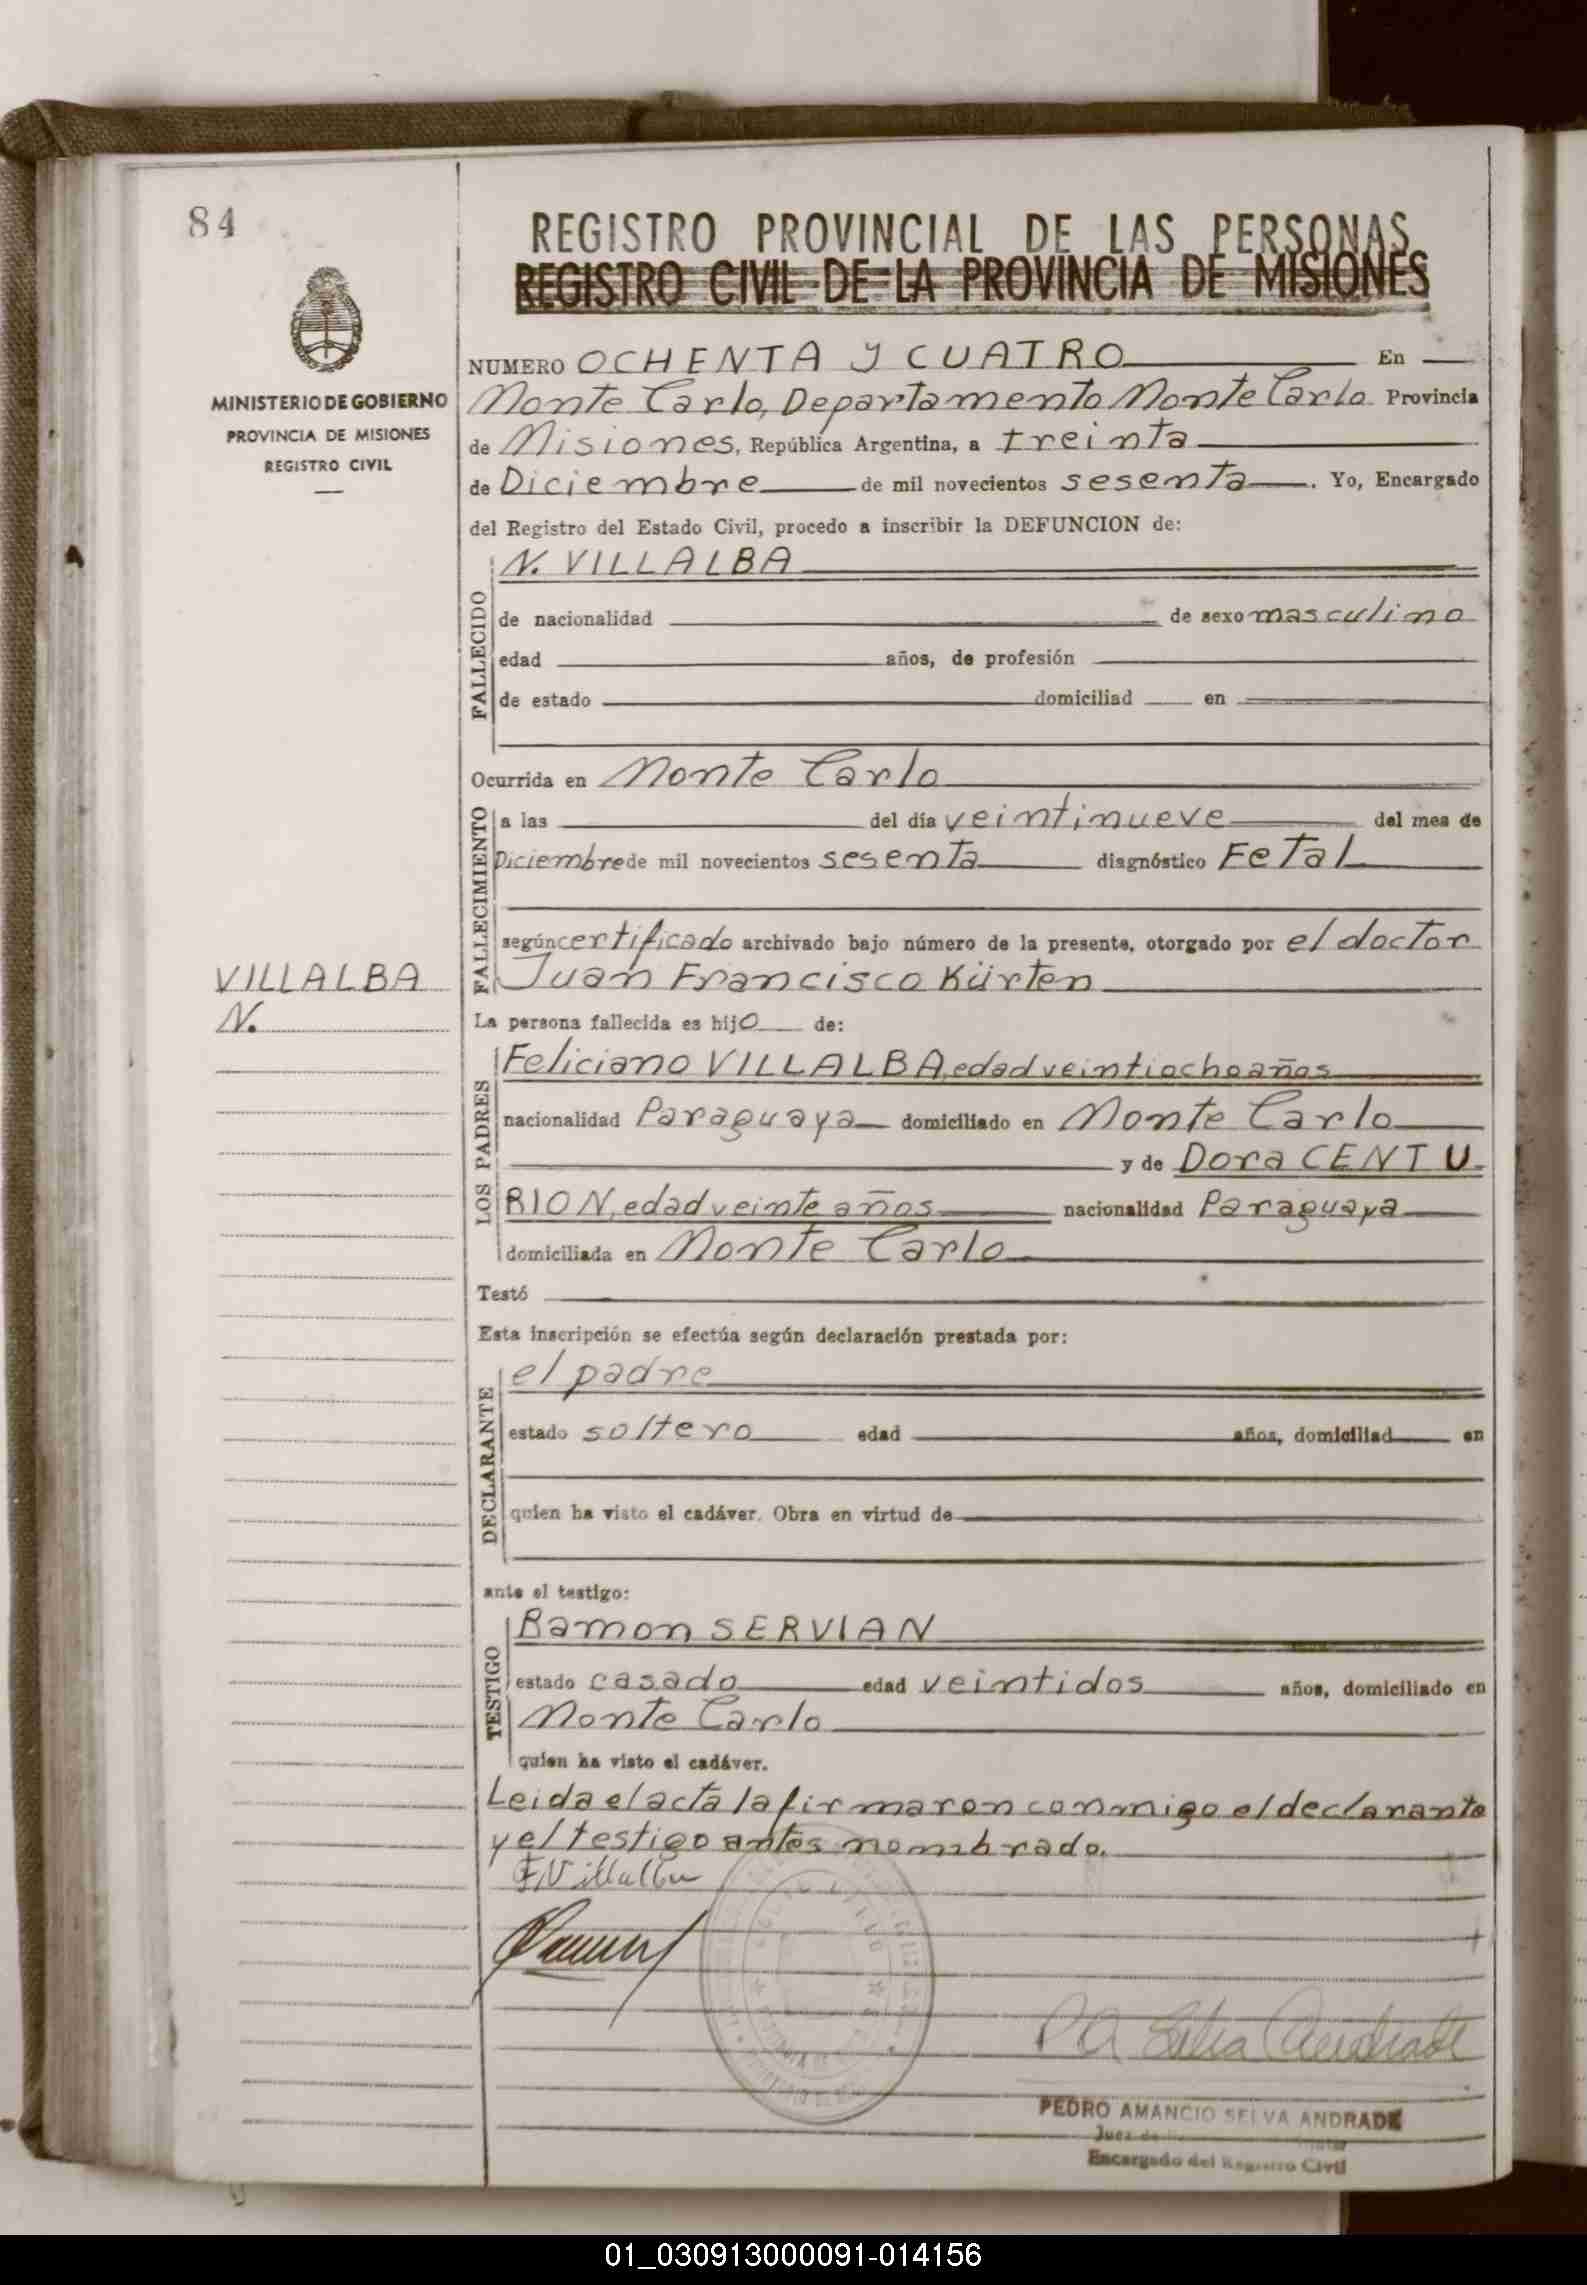 84
REGISTRO PROVINCIAL DE LAS PERSONAS
REGISTRO CIVIL DE LA PROVINCIA DE MISIONES
MINISTERIO DE GOBIERNO
PROVINCIA DE MISIONES
REGISTRO CIVIL
NUMERO OCHENTA Y CUATRO En
Monte Carlo, Departamento Monte Carlo Provincia
de Misiones, República Argentina, a treinta
de Diciembre de mil novecientos sesenta. Yo, Encargado
del Registro del Estado Civil, procedo a inscribir la DEFUNCION de:
FALLECIDO
N. VILLALBA
de nacionalidad de sexo masculino
edad años, de profesión
de estado domiciliad en
Ocurrida en Monte Carlo
FALLECIMIENTO
a las del día veintinueve del mes de
Diciembre de mil novecientos sesenta diagnóstico Fetal
según certificado archivado bajo número de la presente, otorgado por el doctor
Juan Francisco Kürten
VILLALBA
N.
La persona fallecida es hijo de:
LOS PADRES
Feliciano VILLALBA, edad veintiocho años
nacionalidad Paraguaya domiciliado en Monte Carlo
y de Dora CENTU
RION, edad veinte años nacionalidad Paraguaya
domiciliada en Monte Carlo
Testó
Esta inscripción se efectúa según declaración prestada por:
DECLARANTE
el padre
estado soltero edad años, domiciliad en
quien ha visto el cadáver. Obra en virtud de
ante el testigo:
TESTIGO
Ramon SERVIAN
estado casado edad veintidos años, domiciliado en
Monte Carlo
quien ha visto el cadáver.
Leida el acta la firmaron conmigo el declarante
y el testigo antes nombrado.
F. Villalba
PEDRO AMANCIO SELVA ANDRADE
Juez de
Encargado del Registro Civil
01_030913000091-014156